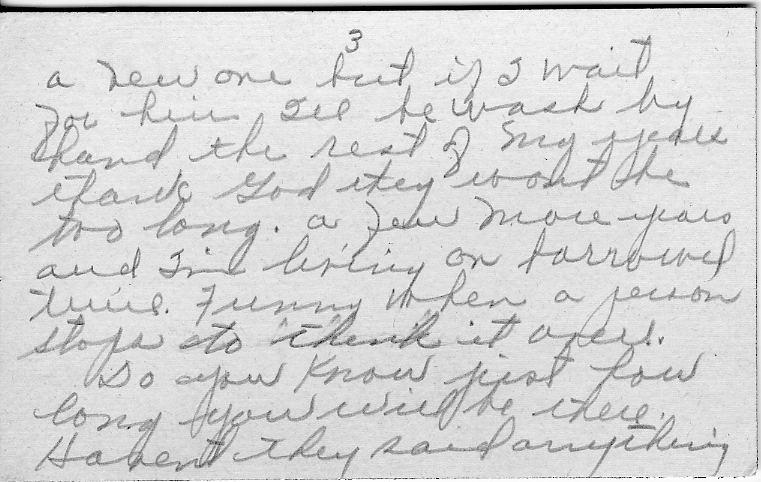 3
a new one but if I wait
for him I'll be wash by
hand the rest of my years
thank God they wont be
too long. a few more years
and I'm living on borrowed
time. Funny when a person
stops to think it over.
Do you know just how
long you will be there.
Havent they said anything